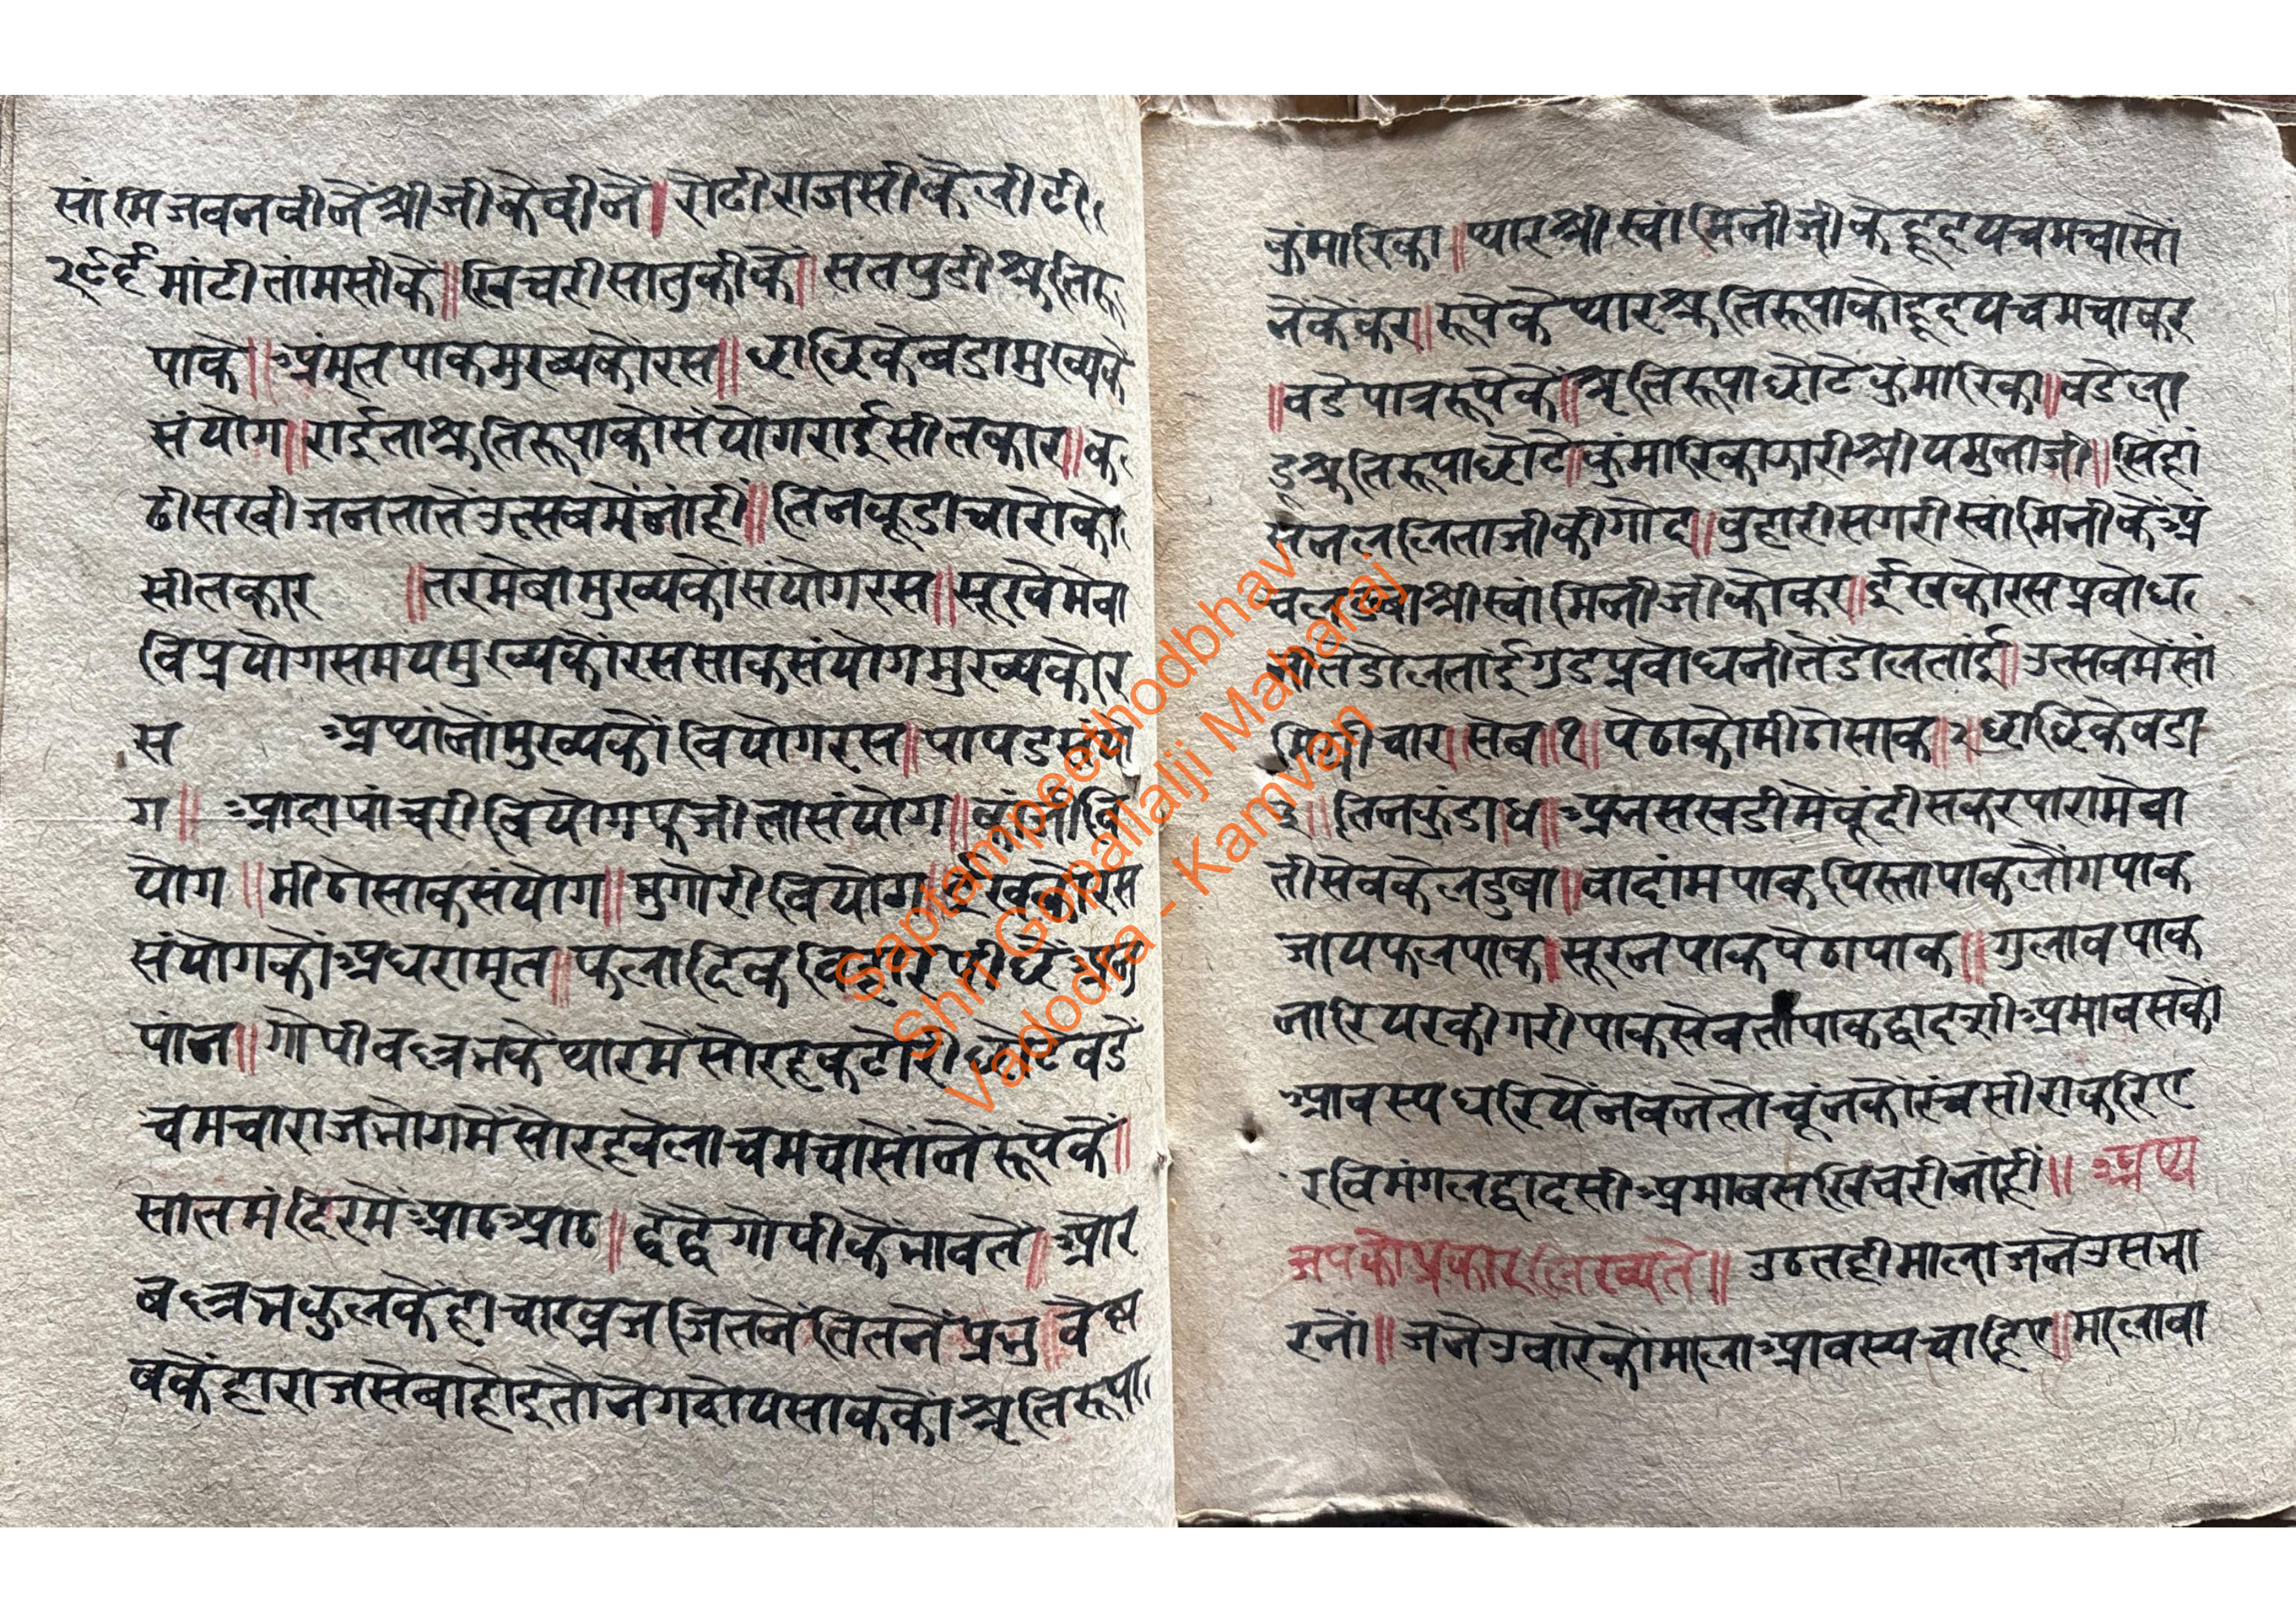 सांमिजवनवीनें श्रीजीकेवीनें । रोटीराजसीकेलीटी
२९६ मांटीतांमसीकें ॥ खिचरीसातुकीकें ॥ सतपुडीश्रुतिरू
पाकें ॥ अंमृतपाकमुख्यकोरस ॥ छाछिकेबडामुख्यके
संयोग ॥ राईताश्रुतिरूपाकोसंयोगराईसीतकार ॥ क
ढीसखीजनतातेंउत्सवमेंनांहीं ॥ तिनकूडाचारोको
सीतकार ॥ तरमेवामुख्यकोंसंयोगरस ॥ सूखेमेवा
विप्रयोगसमयमुख्यकोंरससाकसंयोगमुख्यकोर
स अथांनोंमुख्यकों वियोगरस ॥ पापडसंयो
ग ॥ आदापांचरीवियोगफजीतासंयोग ॥ कांजीवि
योग ॥ मीठोसाकसंयोग ॥ मुगोरीवियोग ॥ ईखकोरस
संयोगकोंअधरामृत ॥ फलादिक
पांन ॥ गोपीवल्लभकेंथारमेंसोरहकटोरीछोटेवडें
चमचाराजभोगमेंसोरहवेलाचमचासोंनेंरूपेकें ॥
सातमंदिरमेंआठआठ ॥ द्वैद्वैगोपीकेंभावतें ॥ और
बल्लभकुलकेंहांचारव्रजजितनेंतितनेंप्रभु ॥ वैष्ण
बकेंहाराजसेबाहोइतोनेगदोयसाककोंश्रुतिरूपा
कुंमारिका ॥ थारश्रीस्वांमिनीजीकेंहृदयचमचासों
नेंकेंकर ॥ रूपेकेंथारश्रुतिरूपाकोहृदयचमचाकर
॥ वडेपात्ररूपेकें ॥ श्रृतिरूपाछोटेकुंमारिका ॥ वडेला
डूश्रुतिरूपाछोटे ॥ कुंमारिकाझारीश्रीयमुनाजी ॥ सिंहां
सनललिताजीकीगोद ॥ वुहारीसगरीस्वांमिनीकेंअं
चलडबाश्रीस्वांमिनीजीकोकर ॥ ईखकोरसप्रवोध
नीतेंडोलतांईगुडप्रवोधनीतेंडोलतांई ॥ उत्सवमेंसां
मिग्रीचार ॥ सेब ॥ १ ॥ पेठाकोमीठोसाक ॥ २ ॥ छाछिकेवडा
३ ॥ तिनकुंडा ४ ॥ अनसखडीमेंबूंदीसकरपारामेवा
तीसेवकेलडुबा ॥ वादांमपाकपिस्तापाकलोंगपाक
जायफलपाक । सूरनपाकपेठापाक ॥ गुलावपाक
नारियरकीगरीपाकसेवतीपाकद्वादशीअमावसकों
आवस्यधरियेंनबनेतोचूंनकोरंचसीराकरिए
रविमंगलद्वादसीअमावसखिचरीनांहीं ॥ अथ्य
जपकोप्रकारलिख्यते ॥ उठतहीमालाजनेउसभा
रनों ॥ जनेउवारेकोंमालाआवस्यचाहिए ॥ मालावा
Saptampeethodbhav
Shri Gopallalji Maharaj
Vadodra - Kamvan